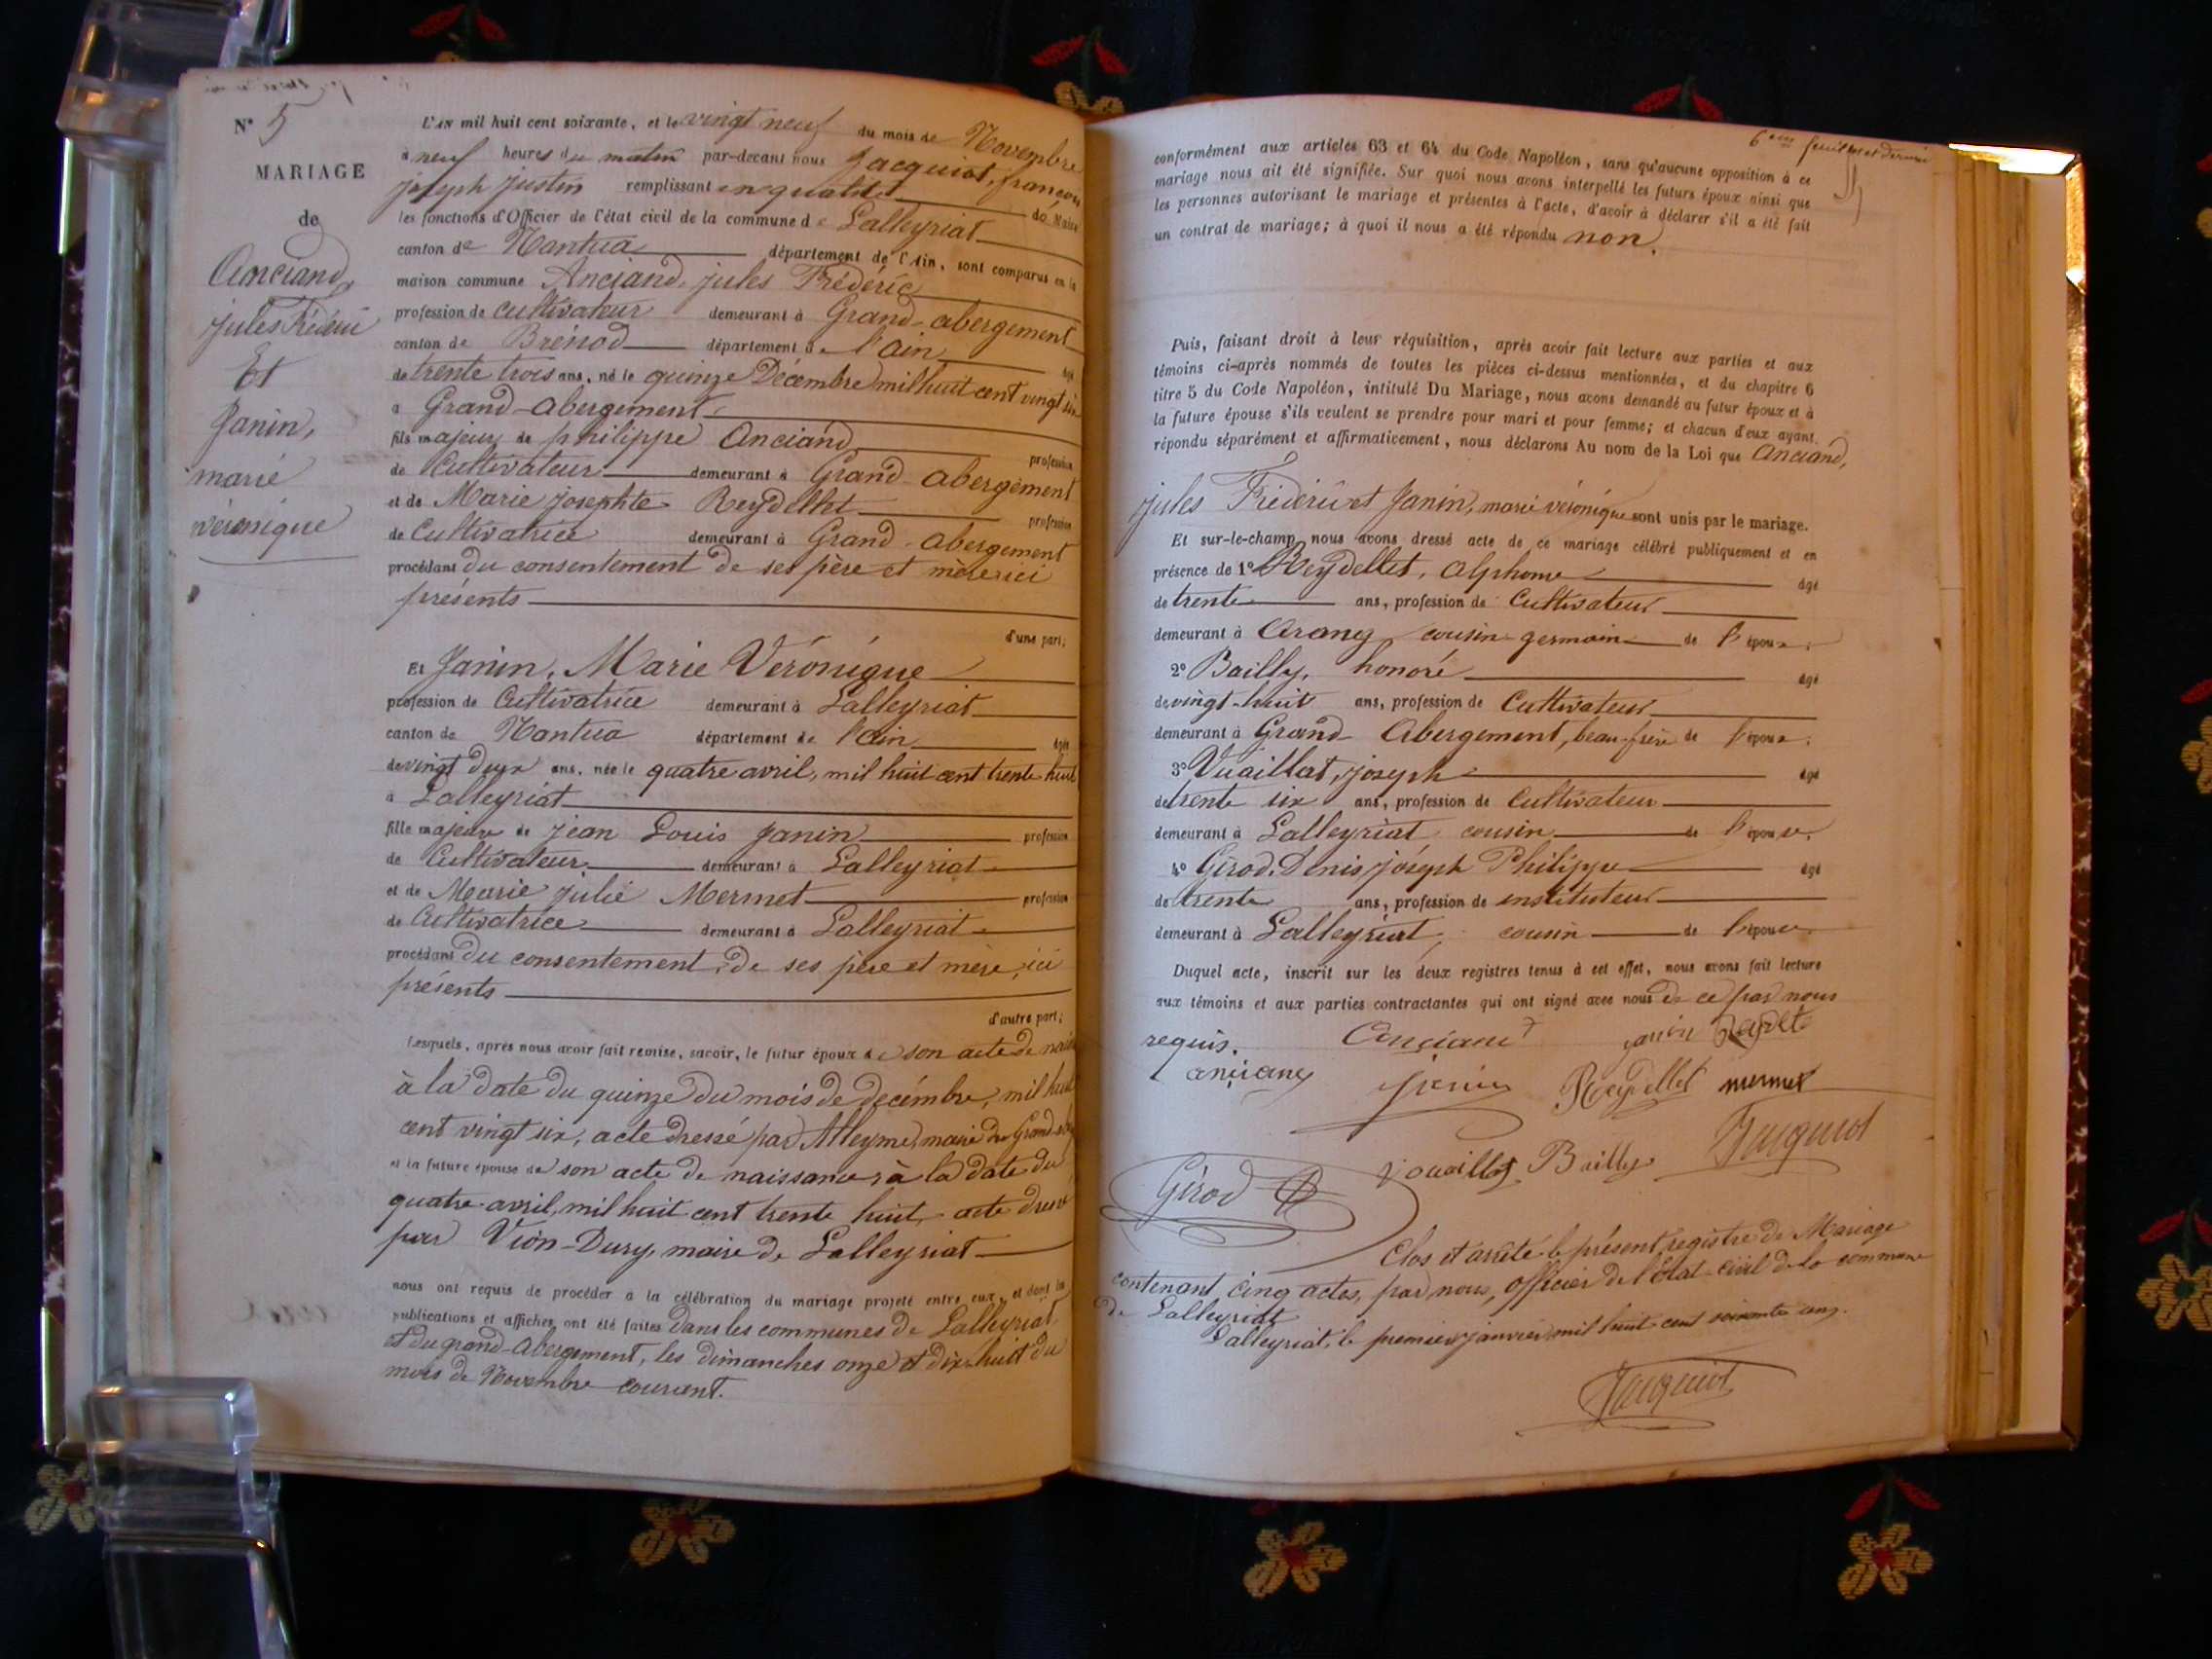 N° 5
MARIAGE
de
Anciand,
Jules Frédéric
Et
Janin,
marie
véronique
L'AN mil huit cent soixante, et le vingt neuf du mois de Novembre
à neuf heures du matin par-devant nous Jacquiot, françois
joseph justin remplissant en qualité de Maire
les fonctions d'Officier de l'état civil de la commune de Lalleyriat
canton de Nantua département de l'Ain, sont comparus en la
maison commune Anciand, jules Frédéric
profession de cultivateur demeurant à Grand-abergement
canton de Brénod département de l'ain âgé
de trente trois ans, né le quinze Decembre mil huit cent vingt six
à Grand-abergement
fils majeur de philippe Anciand profession
de Cultivateur demeurant à Grand abergement
et de Marie josephte Reydellet profession
de Cultivatrice demeurant à Grand-abergement
procédant du consentement de ses père et mère ici
présents
d'une part;
Et Janin, Marie Véronique
profession de Cultivatrice demeurant à Lalleyriat
canton de Nantua département de l'ain âgée
de vingt deux ans, née le quatre avril, mil huit cent trente huit
à Lalleyriat
fille majeure de jean Louis Janin profession
de Cultivateur demeurant à Lalleyriat
et de Marie Julie Mermet profession
de Cultivatrice demeurant à Lalleyriat
procédant du consentement de ses père et mère, ici
présents
d'autre part;
Lesquels, après nous avoir fait remise, savoir, le futur époux de son acte de
à la date du quinze du mois de decémbre, mil huit
cent vingt six, acte dressé par Alleyme, maire du Grand-
et la future épouse de son acte de naissance à la date du
quatre avril, mil huit cent trente huit, acte dressé
par Vion-Dury, maire de Lalleyriat
nous ont requis de procéder à la célébration du mariage projeté entre eux, et dont les
publications et affiches ont été faites dans les communes de Lalleyriat
et du grand-abergement, les dimanches onze et dix-huit du
mois de Novembre courant.
6eme feuillet et dernier
conformément aux articles 63 et 64 du Code Napoléon, sans qu'aucune opposition à ce
mariage nous ait été signifiée. Sur quoi nous avons interpellé les futurs époux ainsi que
les personnes autorisant le mariage et présentes à l'acte, d'avoir à déclarer s'il a été fait
un contrat de mariage; à quoi il nous a été répondu non.
Puis, faisant droit à leur réquisition, après avoir fait lecture aux parties et aux
témoins ci-après nommés de toutes les pièces ci-dessus mentionnées, et du chapitre 6
titre 5 du Code Napoléon, intitulé Du Mariage, nous avons demandé au futur époux et à
la future épouse s'ils veulent se prendre pour mari et pour femme; et chacun d'eux ayant
répondu séparément et affirmativement, nous déclarons Au nom de la Loi que Anciand,
jules Frédéric et Janin, marie véronique sont unis par le mariage.
Et sur-le-champ nous avons dressé acte de ce mariage célébré publiquement et en
présence de 1° Reydellet, alphonse âgé
de trente ans, profession de Cultivateur
demeurant à Arang, cousin germain de l'époux.
2° Bailly, honoré âgé
de vingt-huit ans, profession de Cultivateur
demeurant à Grand Abergement, beau-frère de l'époux.
3° Vuaillat, joseph âgé
de trente six ans, profession de Cultivateur
demeurant à Lalleyriat cousin de l'épouse.
4° Girod, Denis joseph Philippe âgé
de trente ans, profession de instituteur
demeurant à Lalleyriat, cousin de l'épouse
Duquel acte, inscrit sur les deux registres tenus à cet effet, nous avons fait lecture
aux témoins et aux parties contractantes qui ont signé avec nous de ce par nous
requis. Anciand janin
anciany Janin Reydellet mermet
Jacquiot
vouaillat Bailly
Girod
Clos et arrêté le présent registre de Mariage
contenant cinq actes, par nous, officier de l'état civil de la commune
de Lalleyriat
Lalleyriat, le premier janvier mil huit cent soixante un.
Jacquiot